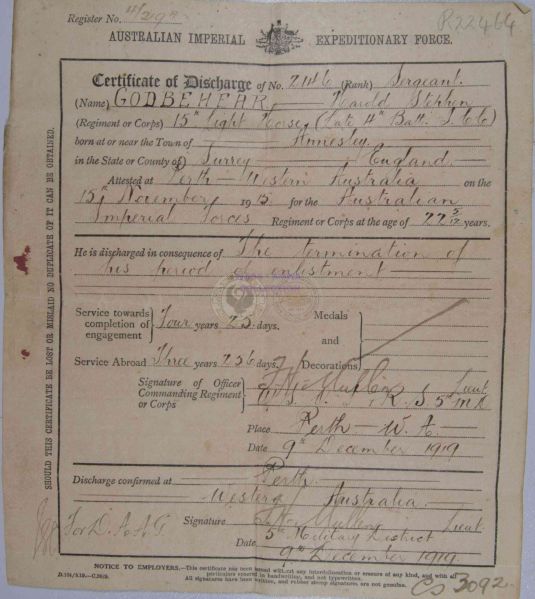 Register No.
R22464
AUSTRALIAN IMPERIAL EXPEDITIONARY FORCE.
Certificate of Discharge of No. 2146 (Rank) Sergeant
(Name) GODBEHEAR Harold Stephen
(Regiment or Corps) 15th Light Horse, (Late 4th Batt. I.C.C)
born at or near the Town of Annesley
in the State or County of Surrey England
Attested at Perth - Western Australia on the
15th November 1915 for the Australian
Imperial Forces Regiment or Corps at the age of 22 5/12 years.
He is discharged in consequence of The termination of
his period of enlistment
Service towards completion of engagement Four years 25 days.
Medals and Decorations
Service Abroad Three years 256 days
Signature of Officer Commanding Regiment or Corps Lieut
5th M.D.
Place Perth - W. A
Date 9th December 1919
Discharge confirmed at Perth
Western Australia.
For D.A.A.G. Signature Lieut
5th Military District
Date 9th December 1919
NOTICE TO EMPLOYERS.—This certificate has been issued without any interlineation or erasure of any kind, and with all
particulars entered in handwriting, and not typewritten.
All signatures have been written, and rubber stamp signatures are not genuine.
CS 3092
SHOULD THIS CERTIFICATE BE LOST OR MISLAID NO DUPLICATE OF IT CAN BE OBTAINED.